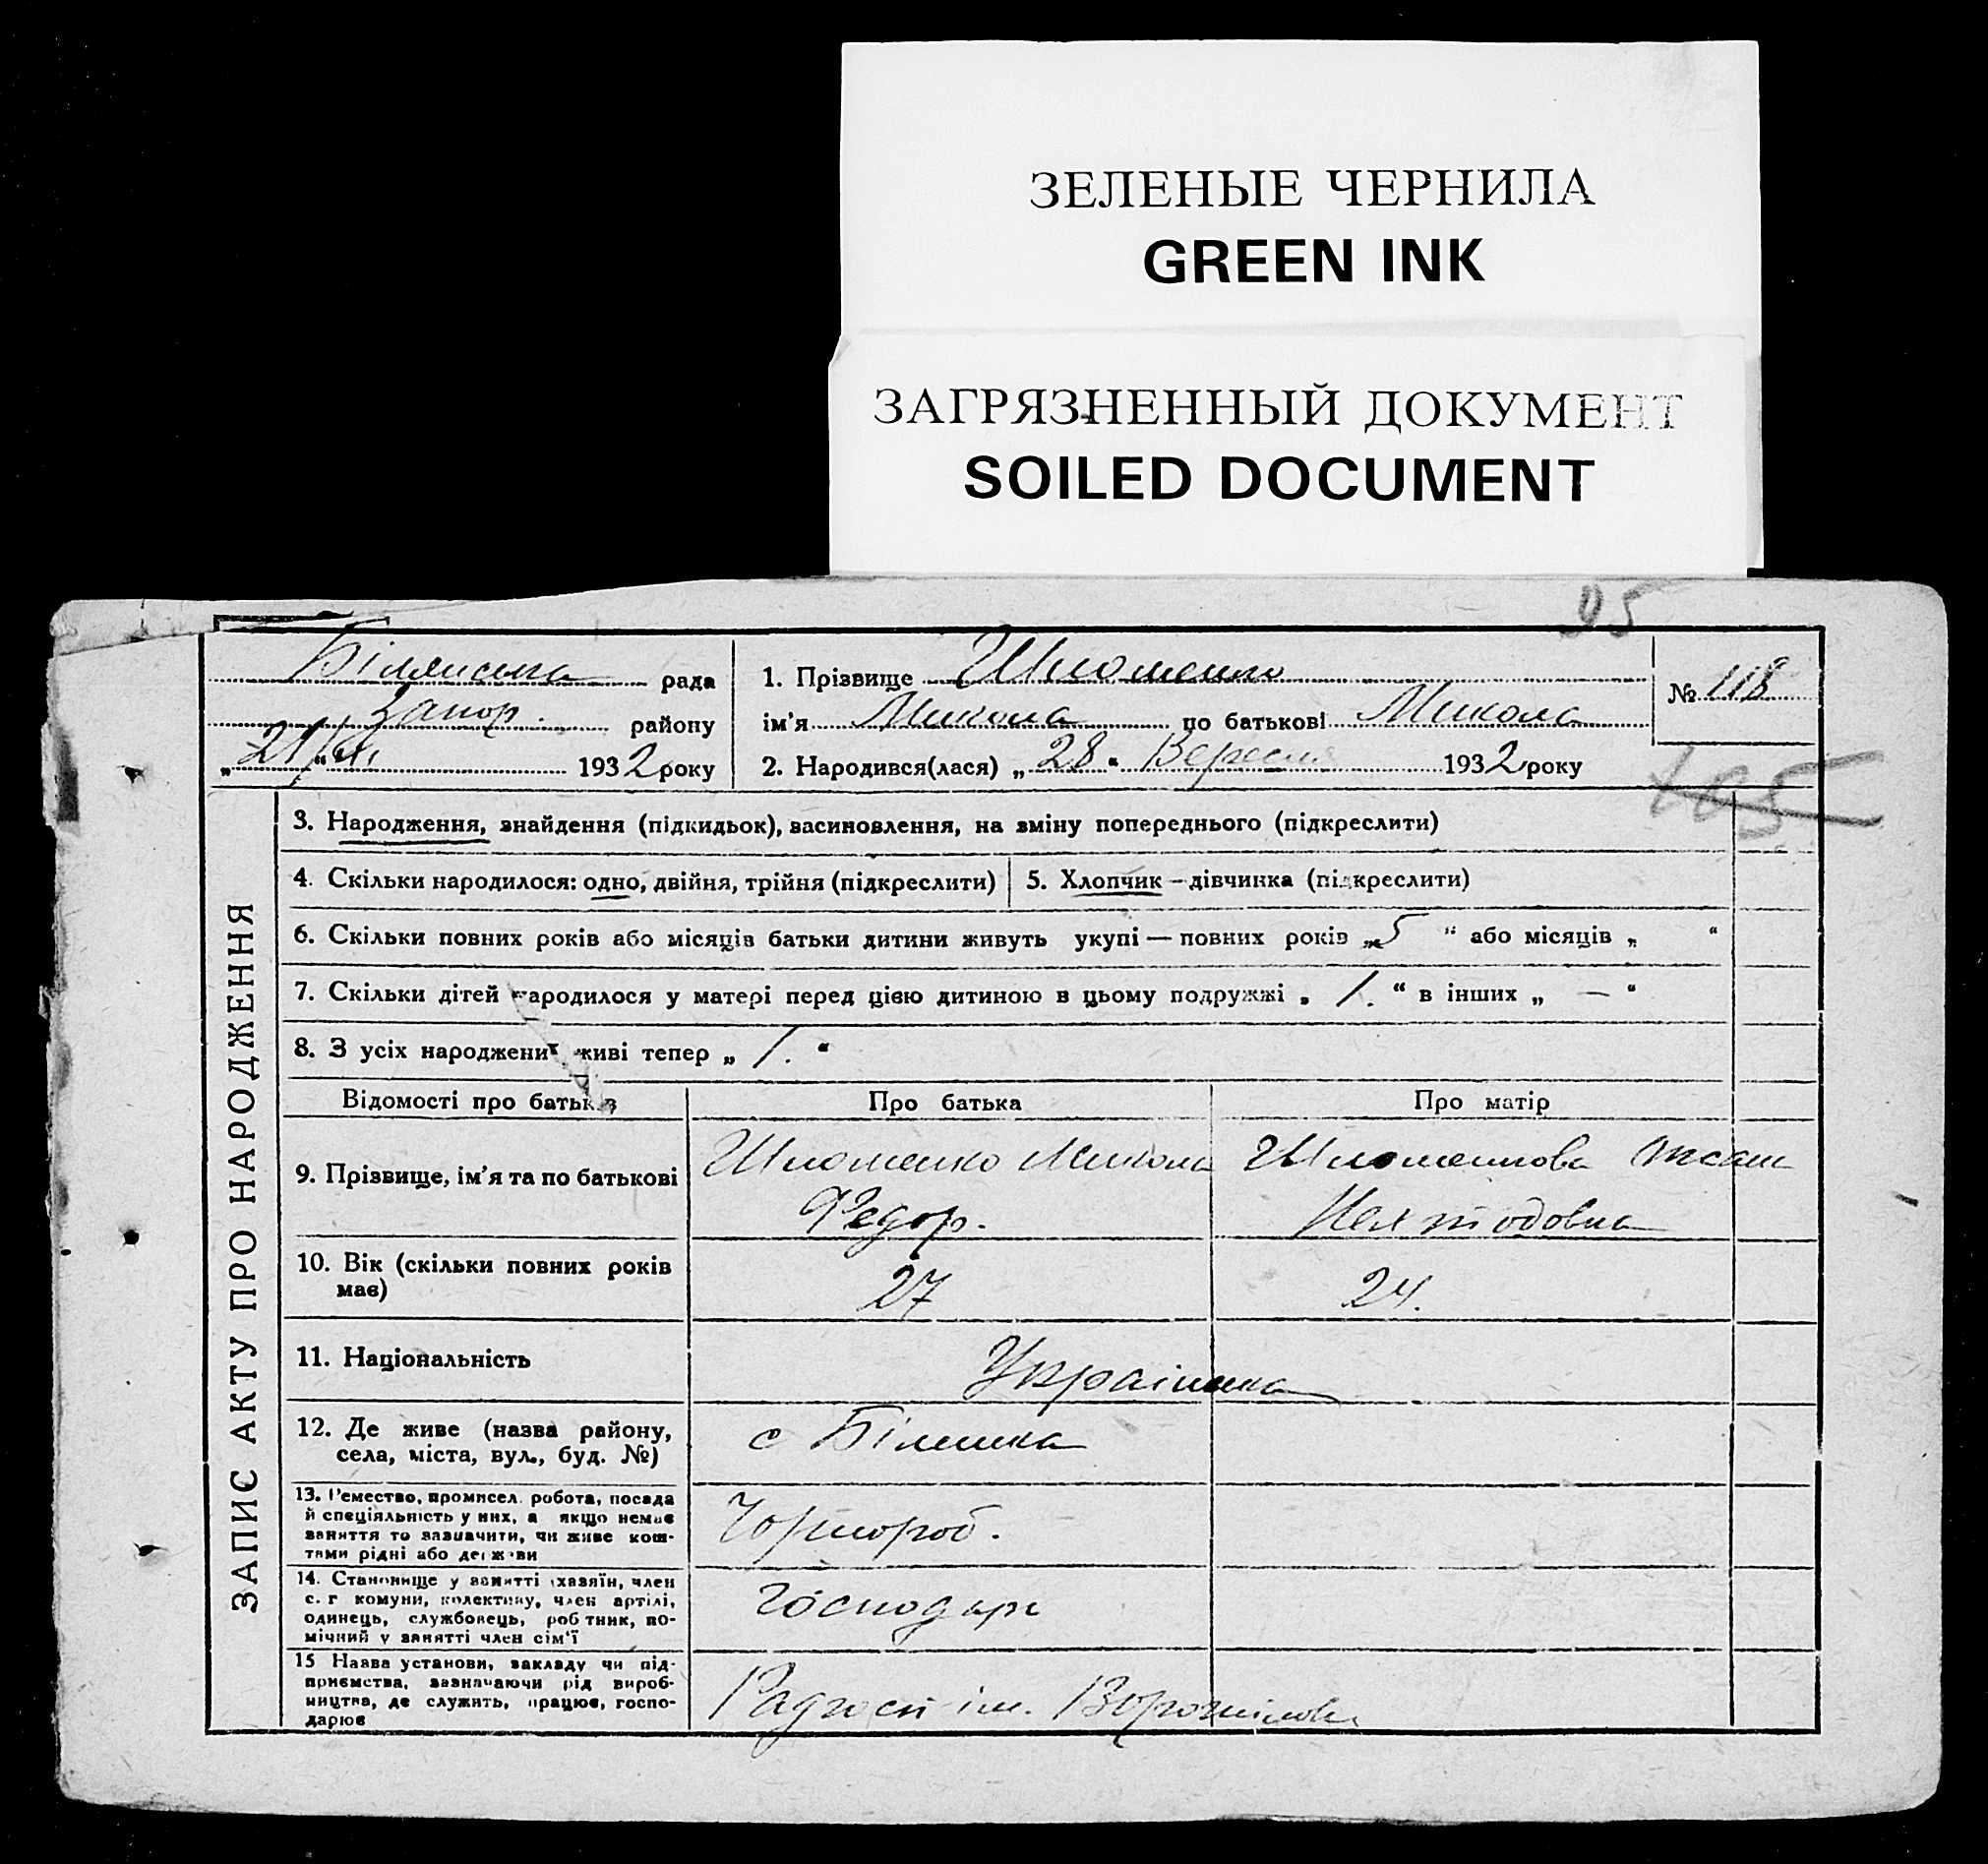 ЗЕЛЕНЫЕ ЧЕРНИЛА
GREEN INK
ЗАГРЯЗНЕННЫЙ ДОКУМЕНТ
SOILED DOCUMENT
95
Білянська рада
Запор. району
193 2 року
1. Прізвище
ім'я Микола по батькові Микола
2. Народився(лася) „ 28 " Вересня 193 2 року
№ 118
105
ЗАПИС АКТУ ПРО НАРОДЖЕННЯ
3. Народження, знайдення (підкидьок), засиновлення, на зміну попереднього (підкреслити)
4. Скільки народилося: одно, двійня, трійня (підкреслити)
5. Хлопчик – дівчинка (підкреслити)
6. Скільки повних років або місяців батьки дитини живуть укупі — повних років „ 5 " або місяців „ "
7. Скільки дітей народилося у матері перед цією дитиною в цьому подружжі „ 1. " в інших „ — "
8. З усіх народжених живі тепер „ 1. "
Відомості про батьків
Про батька
Про матір
9. Прізвище, ім'я та по батькові
Микола
Федор.
10. Вік (скільки повних років
має)
27
24.
11. Національність
12. Де живе (назва району,
села, міста, вул., буд. №)
с
13. Ремество, промисел, робота, посада
й спеціяльність у них, а якщо немає
заняття то зазначити, чи живе кош-
тами рідні або держави
Чорнороб.
14. Становище у занятті (хазяїн, член
с. г комуни, колективу, член артілі,
одинець, службовець, робітник, по-
мічний у занятті член сім'ї
Господарь
15 Назва установи, закладу чи під-
приємства, зазначаючи рід вироб-
ництва, де служить, працює, госпо-
дарює
Радгосп ім. Ворошилова